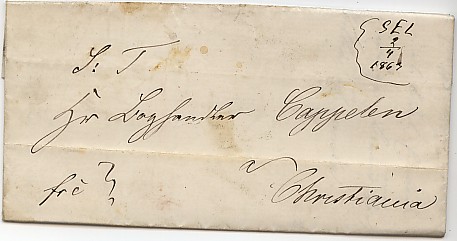 SEL
9/4
186
S: T
Hr Boghandler Cappelen
frc
Christiania